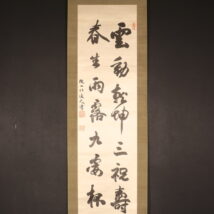 雲動乾坤三祝壽
春生雨露九霞杯